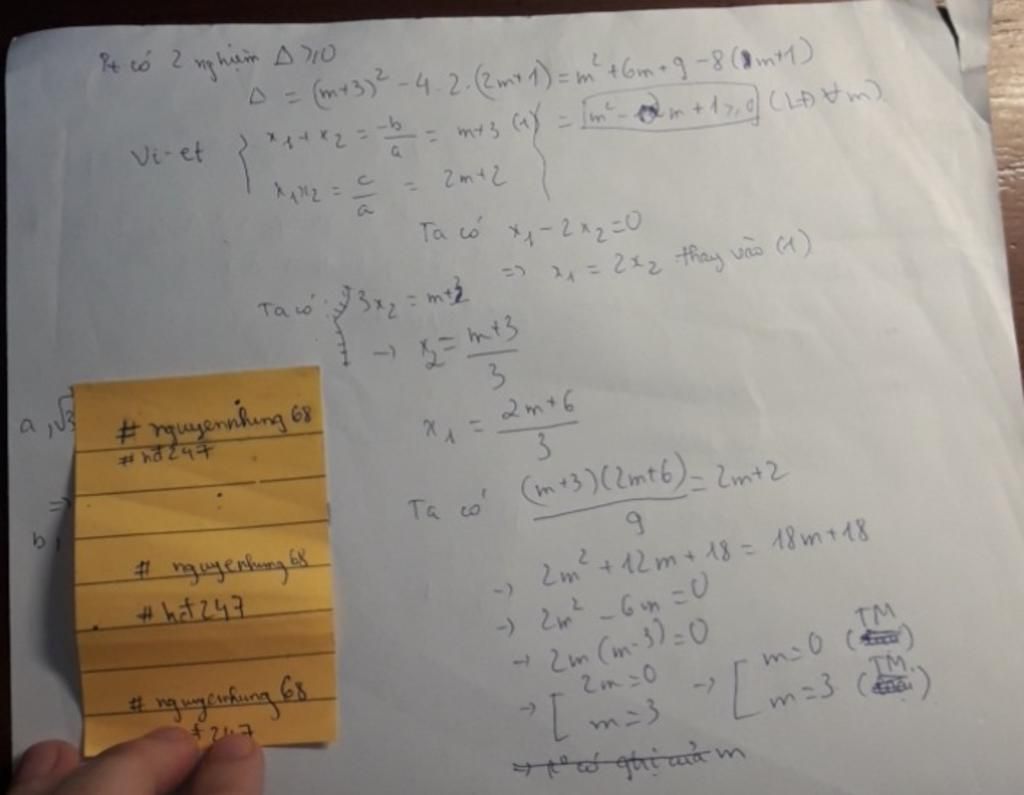 Pt có 2 nghiệm Δ ≥ 0
Δ = (m+3)² - 4.2.(2m+1) = m² + 6m + 9 - 8(m+1)
= m² - 2m + 1 ≥ 0 (LĐ ∀m)
Vi-et { x₁ + x₂ = -b/a = m+3 (1)
x₁x₂ = c/a = 2m+2
Ta có x₁ - 2x₂ = 0
=> x₁ = 2x₂ thay vào (1)
Ta có: 3x₂ = m+3
→ x₂ = (m+3)/3
x₁ = (2m+6)/3
Ta có (m+3)(2m+6)/9 = 2m+2
→ 2m² + 12m + 18 = 18m + 18
→ 2m² - 6m = 0
→ 2m(m-3) = 0
→ [ 2m = 0 → [ m = 0 (TM)
m = 3 m = 3 (TM)
a, √3
=>
b,
# nguyennhung 68
# hđ 247
# nguyenhung 68
# hđ 247
# nguyenhung 68
247